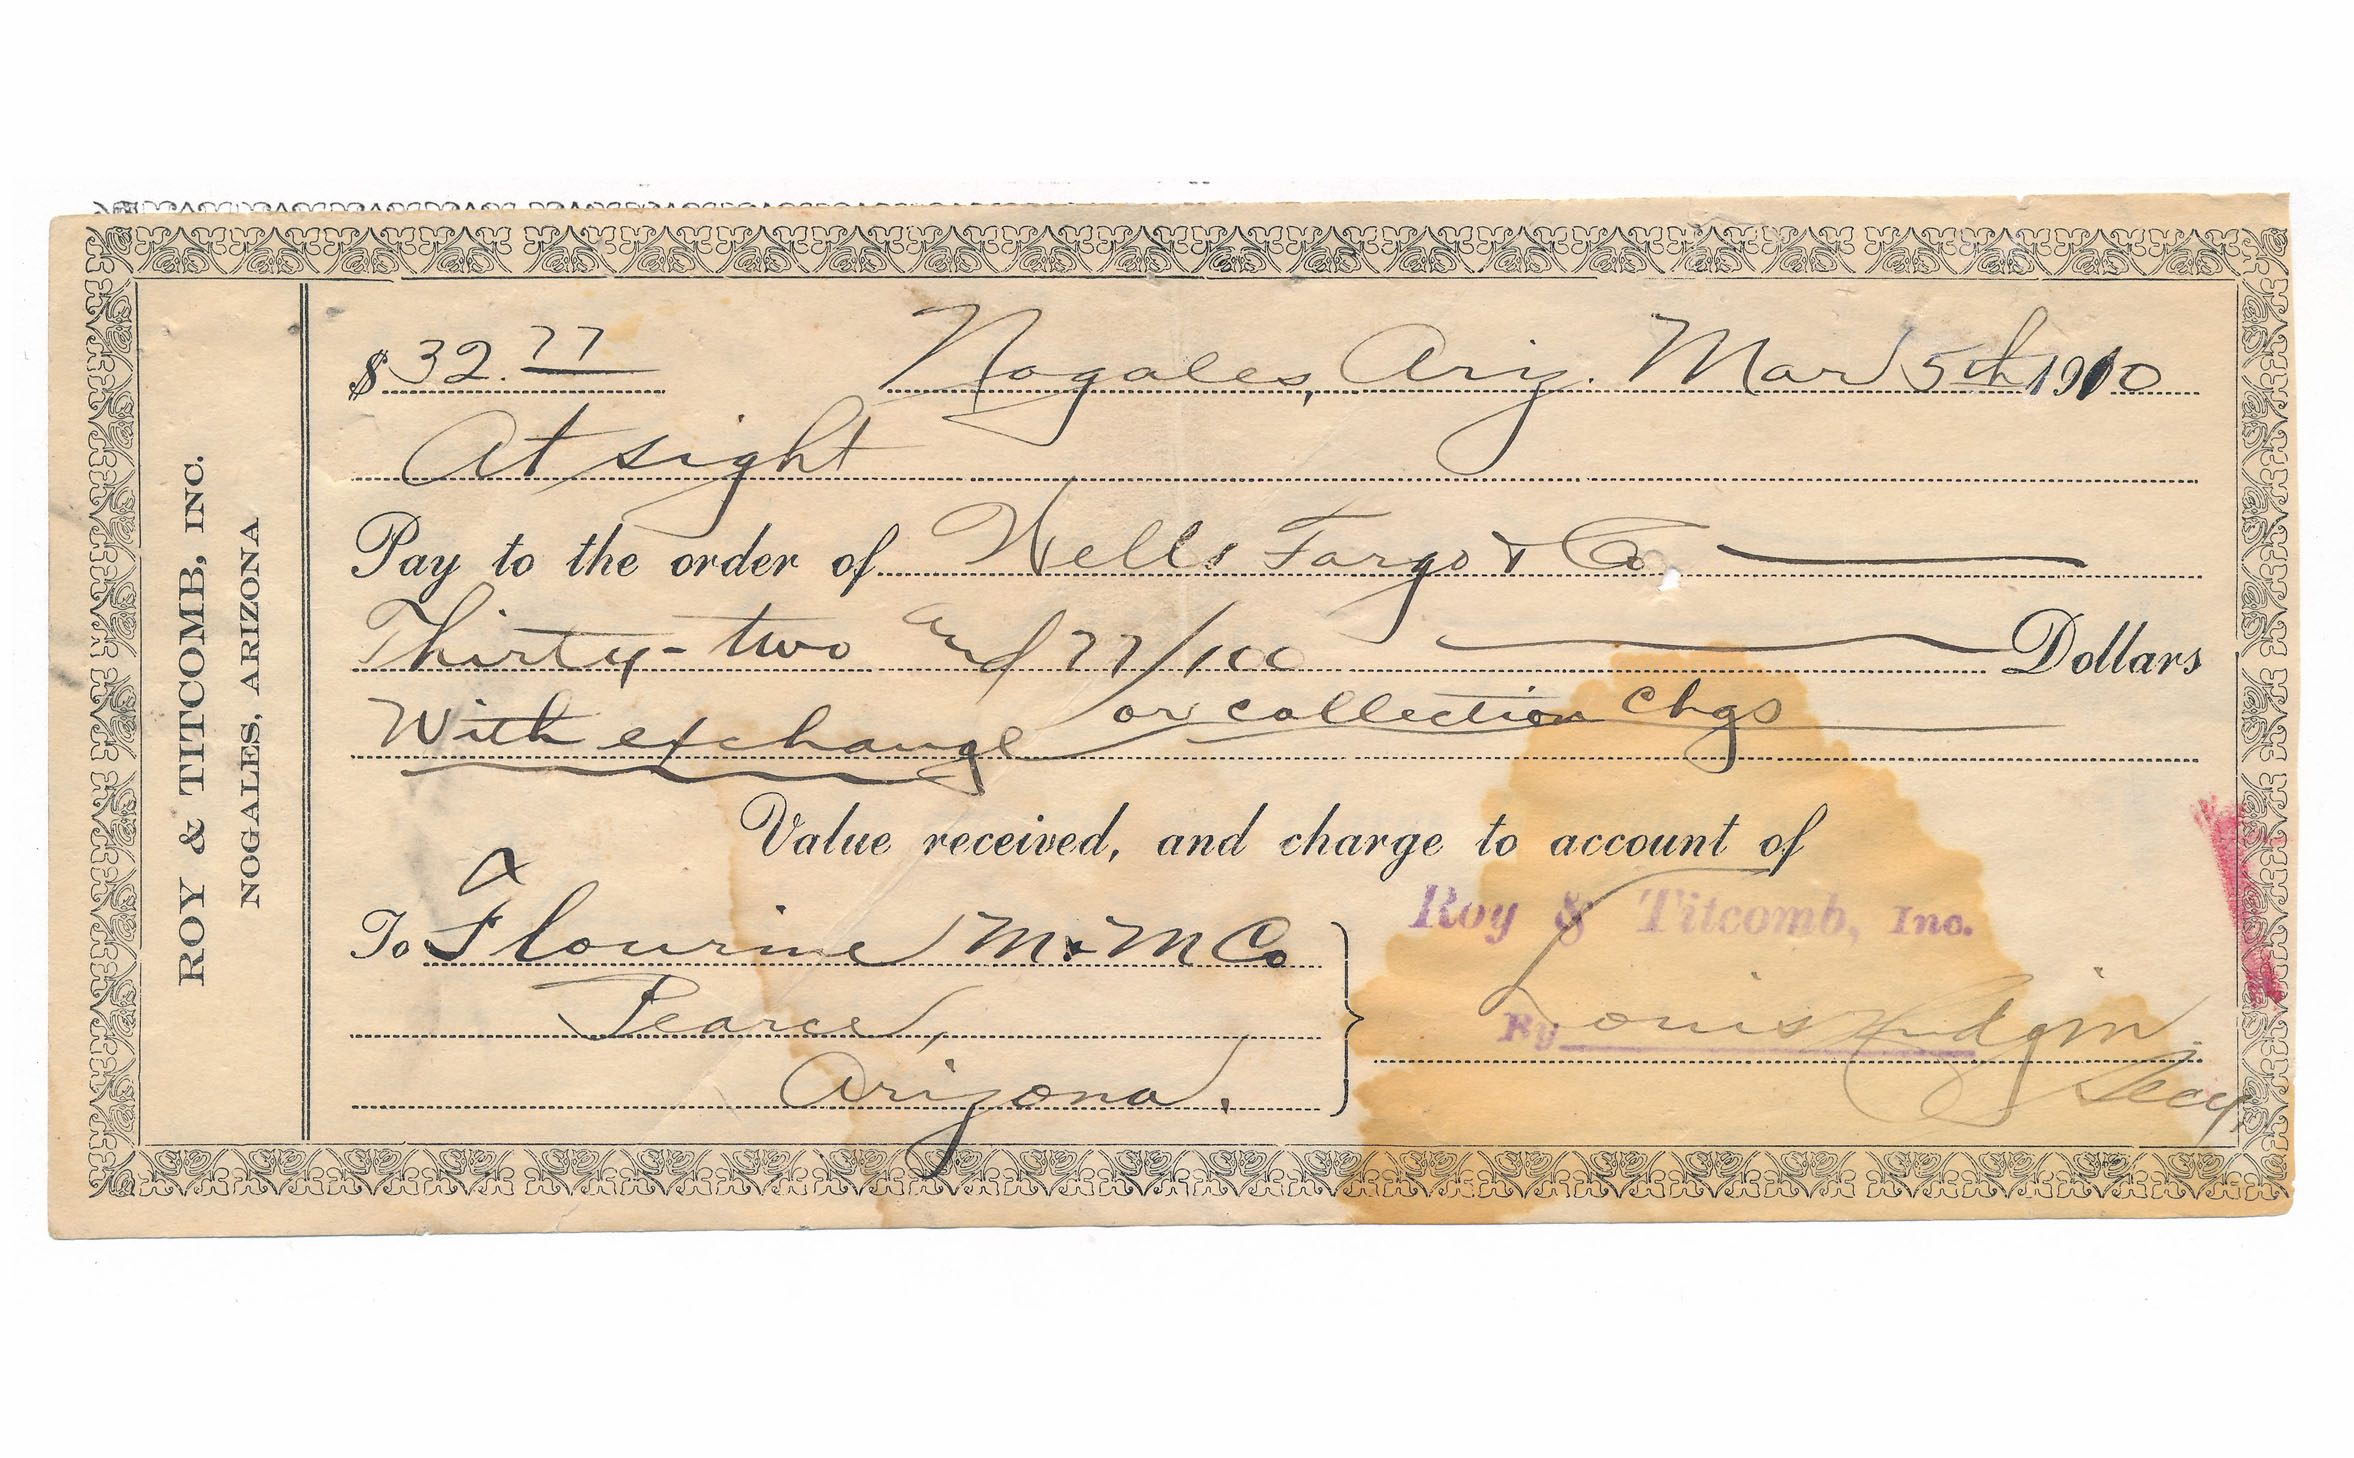 ROY & TITCOMB, INC.
NOGALES, ARIZONA
$ 32.77 Nogales, Ariz. Mar 5th 1910
At sight
Pay to the order of Wells Fargo & Co
Thirty-two and 77/100 Dollars
With exchange or collection chgs
Value received, and charge to account of
Roy & Titcomb, Inc.
To Flourine M & M Co
Pearce,
Arizona.
By Louis Hudgin
Secy.